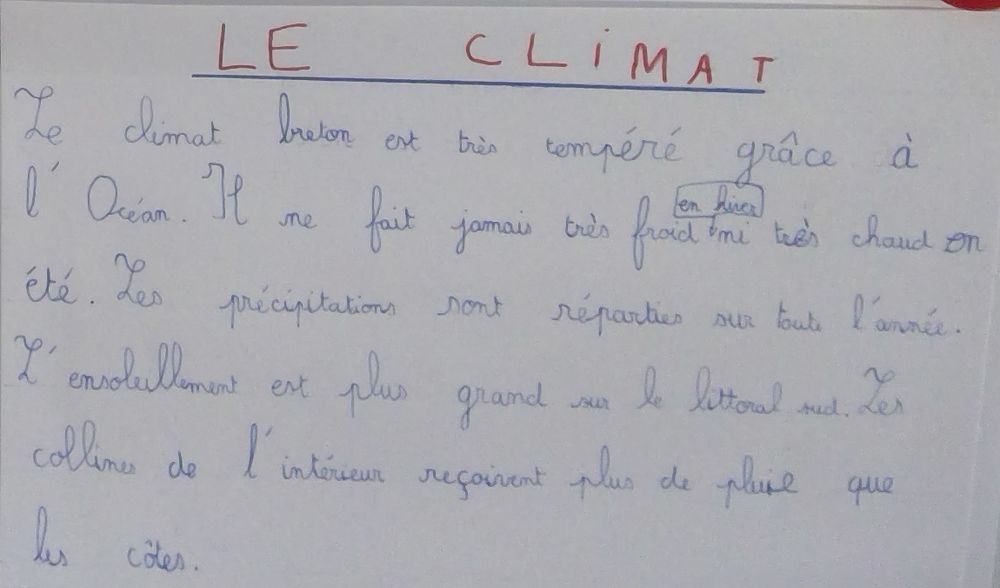 LE CLiMAT
Le climat breton est très tempéré grâce à
l'Océan. Il ne fait jamais très froid en hiver ni très chaud en
été. Les précipitations sont réparties sur toute l'année.
L'ensoleillement est plus grand sur le littoral sud. Les
collines de l'intérieur reçoivent plus de pluie que
les côtes.